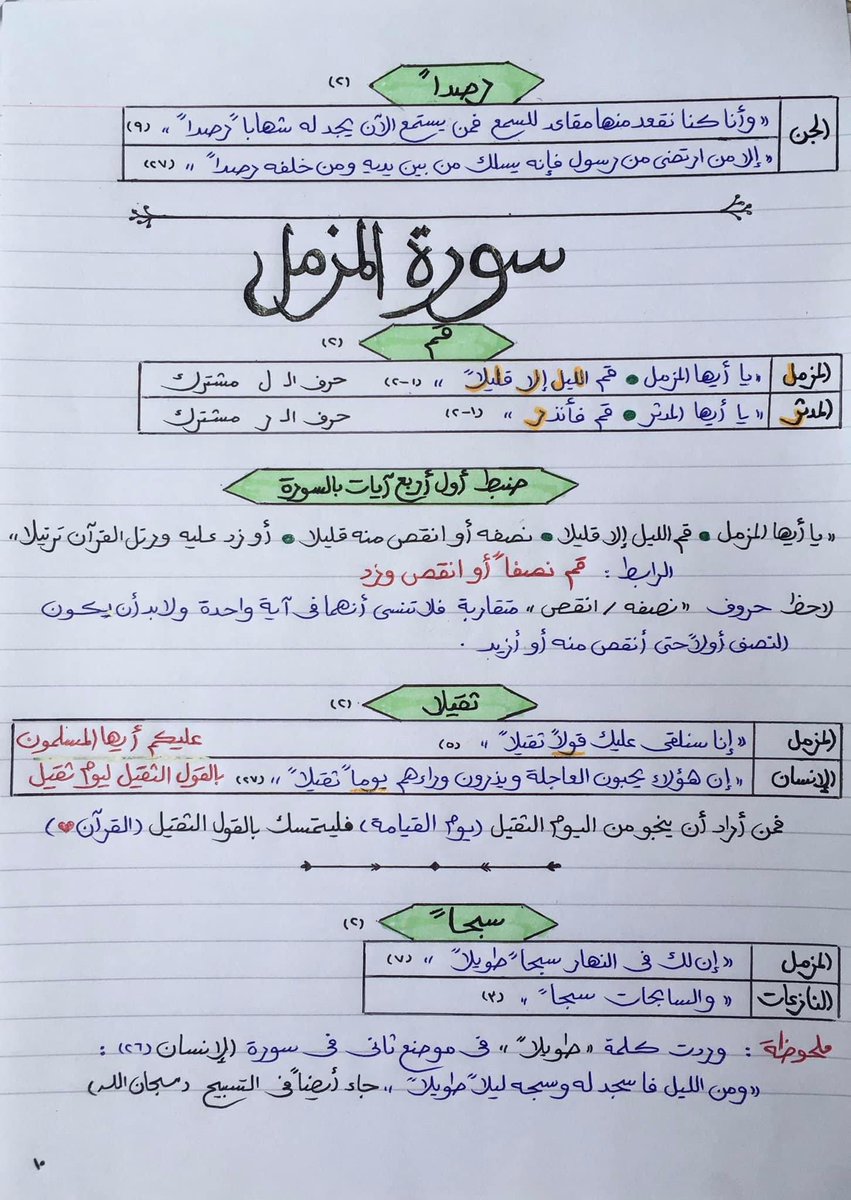 رصداً (٢)
الجن
« وأنا كنا نقعد منها مقاعد للسمع فمن يستمع الآن يجد له شهاباً رصداً » (٩)
« إلا من ارتضى من رسول فإنه يسلك من بين يديه ومن خلفه رصداً » (٢٧)
سورة المزمل
قم (٢)
المزمل « يا أيها المزمل • قم الليل إلا قليلاً » (١-٢) حرف الـ ل مشترك
المدثر « يا أيها المدثر • قم فأنذر » (١-٢) حرف الـ ر مشترك
ضبط أول أربع آيات بالسورة
« يا أيها المزمل • قم الليل إلا قليلا • نصفه أو انقص منه قليلا • أو زد عليه ورتل القرآن ترتيلا »
الرابط : قم نصفاً أو انقص وزد
لاحظ حروف « نصفه / انقص » متقاربة فلا تنسى أنهما فى آية واحدة ولابد أن يكون
النصف أولاً حتى أنقص منه أو أزيد .
ثقيلا (٢)
المزمل « إنا سنلقى عليك قولاً ثقيلاً » (٥) عليكم أيها المسلمون
الإنسان « إن هؤلاء يحبون العاجلة ويذرون وراءهم يوماً ثقيلاً » (٢٧) بالقول الثقيل ليوم ثقيل
فمن أراد أن ينجو من اليوم الثقيل (يوم القيامة) فليتمسك بالقول الثقيل (القرآن)
سبحاً (٢)
المزمل « إن لك فى النهار سبحاً طويلاً » (٧)
النازعات « والسابحات سبحاً » (٣)
ملحوظة : وردت كلمة « طويلاً » فى موضع ثانى فى سورة الإنسان (٢٦) :
« ومن الليل فاسجد له وسبحه ليلاً طويلاً » جاء أيضاً فى التسبيح (سبحان الله)
١٠